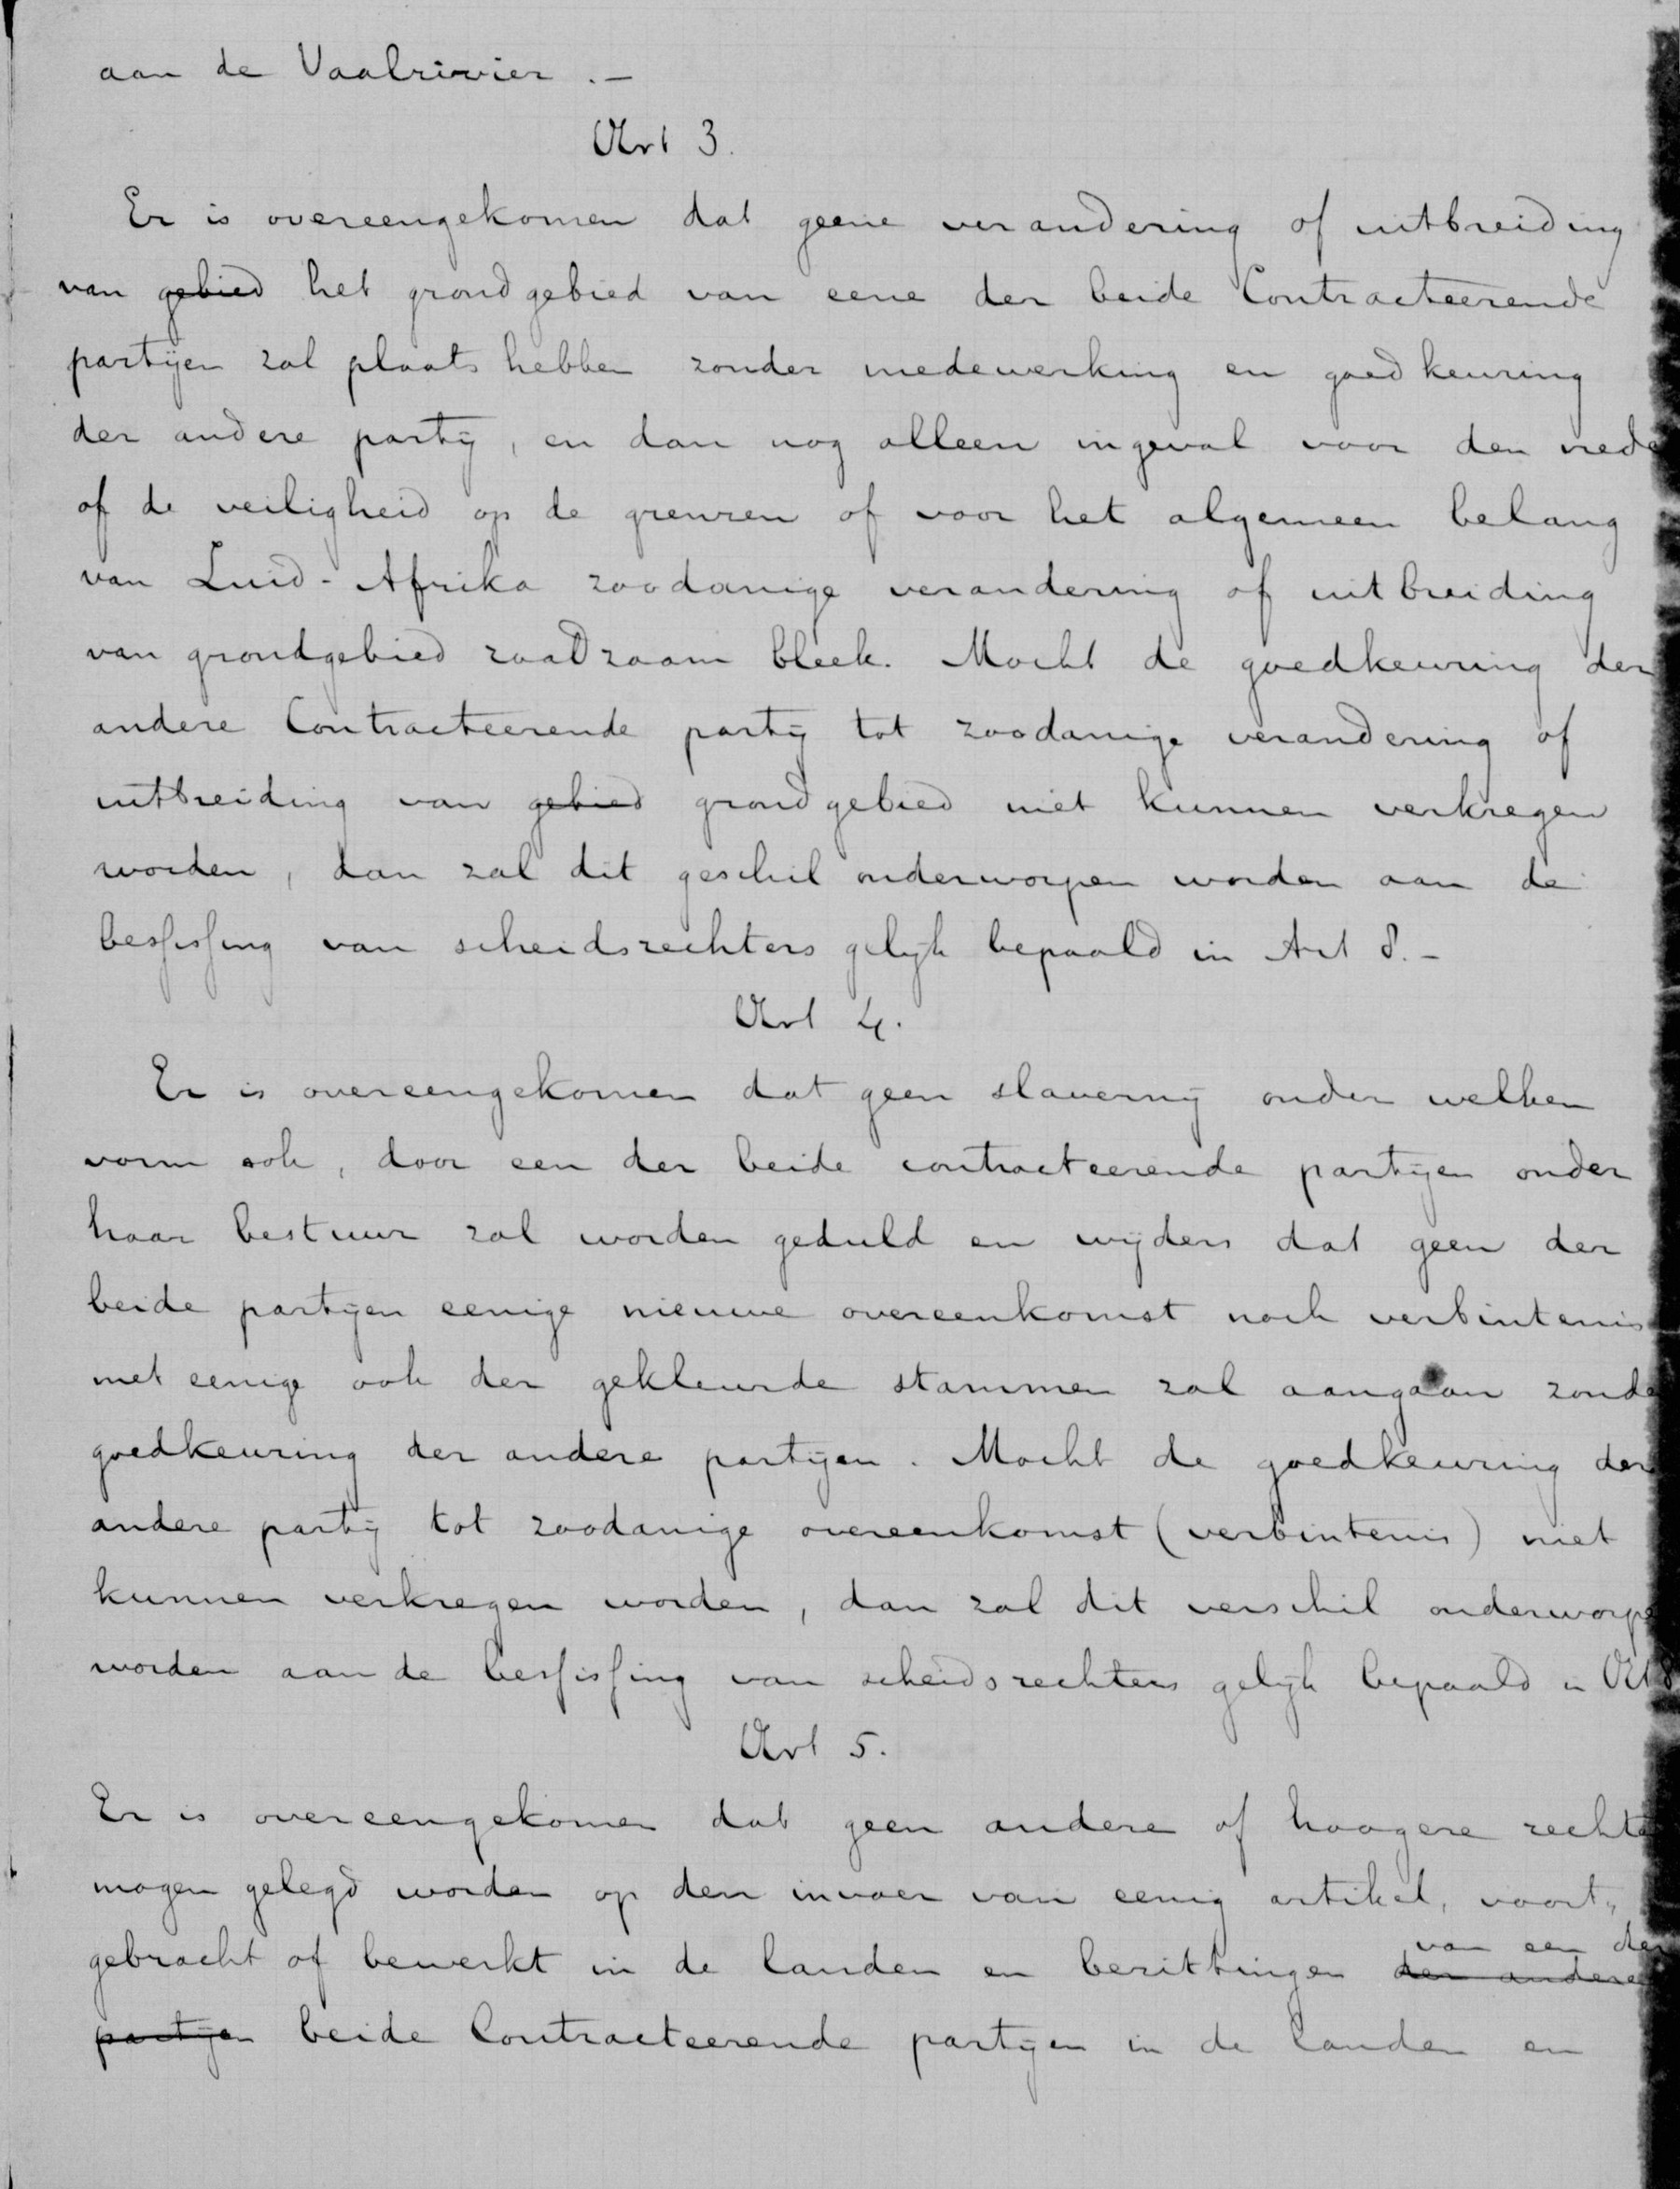 aan de Vaalrivier .-
Art 3.
Er is overeengekomen dat geene verandering of uitbreiding
van gebied het grondgebied van eene der beide Contracteerende
partijen zal plaats hebben zonder medewerking en goedkeuring
der andere partij, en dan nog alleen ingeval voor den vrede
of de veiligheid op de grenzen of voor het algemeen belang
van Zuid-Afrika zoodanige verandering of uitbreiding
van grondgebied raadzaam bleek. Mocht de goedkeuring der
andere Contracteerende partij tot zoodanige verandering of
uitbreiding van gebied grondgebied niet kunnen verkregen
worden, dan zal dit geschil onderworpen worden aan de
beslissing van scheidsrechters gelijk bepaald in Art 8.-
Art 4.
Er is overeengekomen dat geen slavernij onder welken
vorm ook, door een der beide contracteerende partijen onder
haar bestuur zal worden geduld en wijders dat geen der
beide partijen eenige nieuwe overeenkomst noch verbintenis
met eenige ook der gekleurde stammen zal aangaan zonde
goedkeuring der andere partijen. Mocht de goedkeuring der
andere partij tot zoodanige overeenkomst (verbintenis) niet
kunnen verkregen worden, dan zal dit verschil onderworpe
worden aan de beslissing van scheidsrechters gelijk bepaald in Art 8
Art 5.
Er is overeengekomen dat geen andere of hoogere rechte
mogen gelegd worden op den invoer van eenig artikel, voort,
gebracht of bewerkt in de landen en bezittingen der andere van een der
partijen beide Contracteerende partijen in de landen en